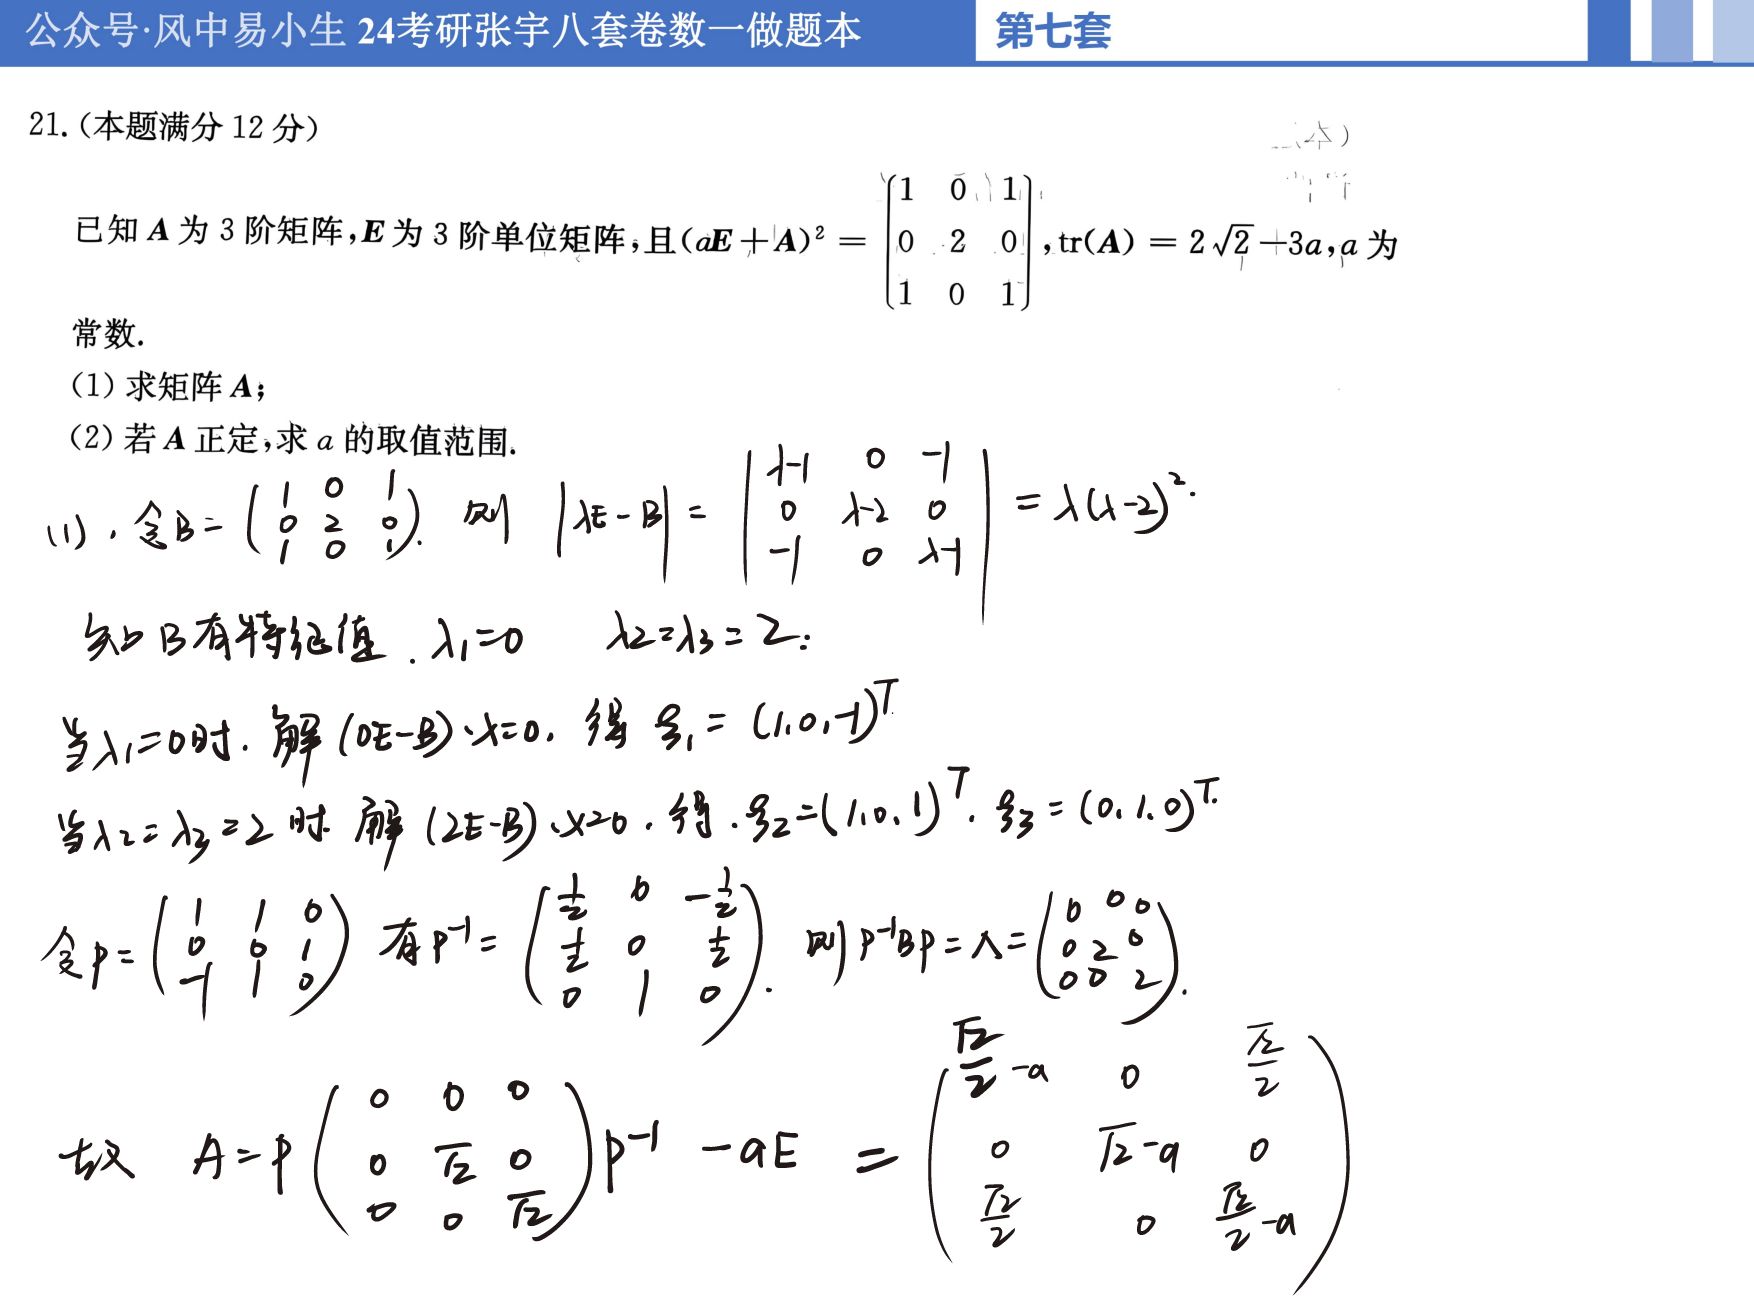 公众号·风中易小生 24考研张宇八套卷数一做题本 第七套
21.(本题满分 12 分)
已知 A 为 3 阶矩阵,E 为 3 阶单位矩阵,且(aE+A)² = [1 0 1; 0 2 0; 1 0 1], tr(A) = 2√2−3a, a 为
常数.
(1) 求矩阵 A;
(2) 若 A 正定,求 a 的取值范围.
(1). 令B= (1 0 1; 0 2 0; 1 0 1). 则 |λE-B| = |λ-1 0 -1; 0 λ-2 0; -1 0 λ-1| = λ(λ-2)².
知B有特征值. λ1=0 λ2=λ3=2.
当λ1=0时. 解(0E-B)·x=0. 得 ξ1=(1,0,-1)^T
当λ2=λ3=2时 解(2E-B)·x=0. 得.ξ2=(1,0,1)^T. ξ3=(0,1,0)^T.
令P= (1 1 0; 0 0 1; -1 1 0) 有P^-1= (1/2 0 -1/2; 1/2 0 1/2; 0 1 0). 则P^-1BP=Λ= (0 0 0; 0 2 0; 0 0 2).
故 A=P (0 0 0; 0 √2 0; 0 0 √2) P^-1 -aE = (√2/2-a 0 √2/2; 0 √2-a 0; √2/2 0 √2/2-a)